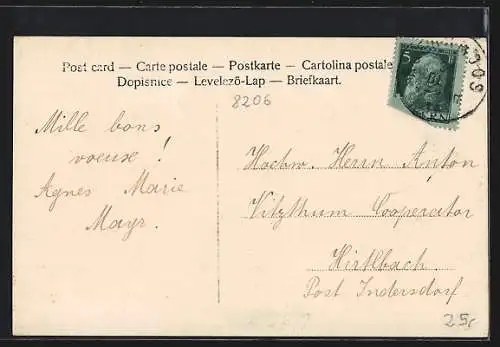 Post card — Carte postale — Postkarte — Cartolina postale
Dopisnice — Levelező-Lap — Briefkaart.
8206
5
Mille bons
voeuxe!
Agnes Marie
Mayr.
Hochw. Herrn Anton
Vitzthum Cooperator
Hirtlbach
Post Indersdorf
25,